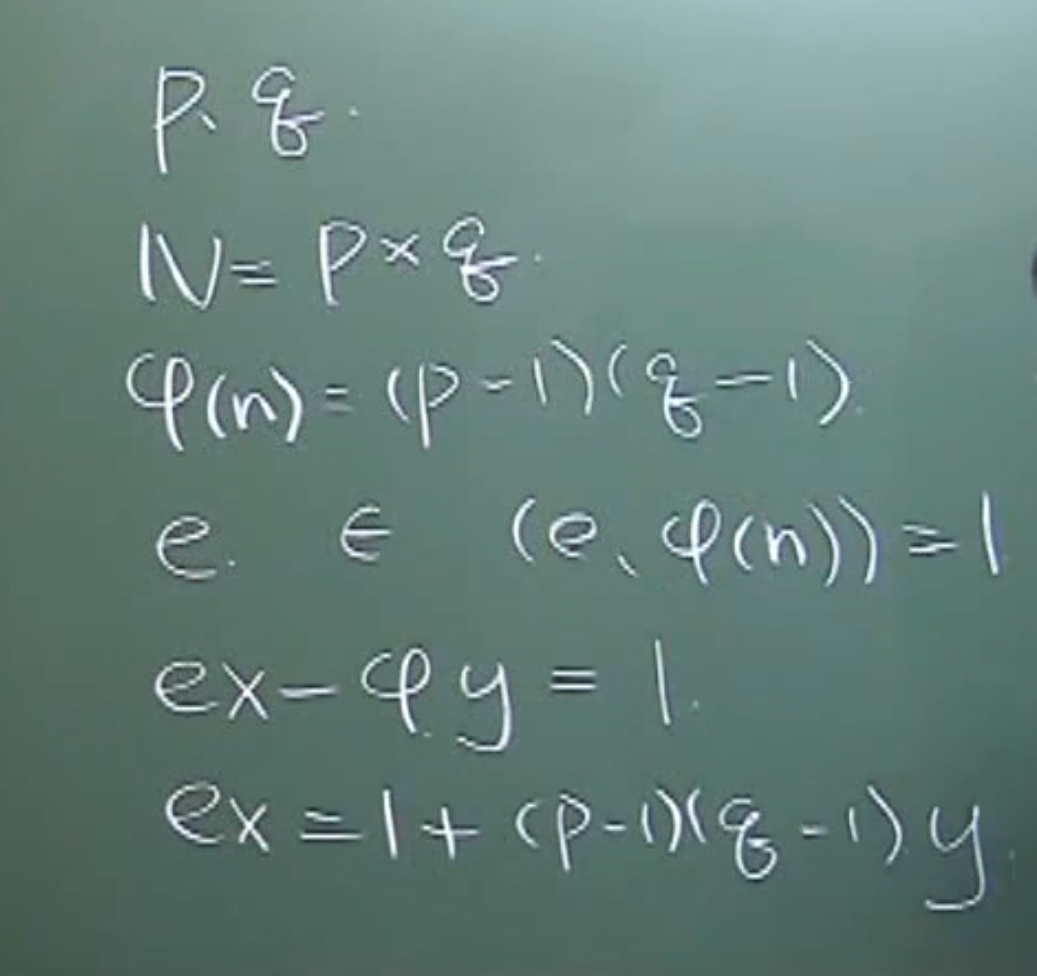 p、q.
N = p × q.
φ(n) = (p-1)(q-1).
e. ∈ (e、φ(n)) = 1
ex - φ.y = 1.
ex = 1 + (p-1)(q-1)y.